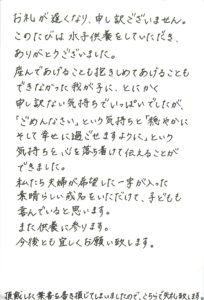 お礼が遅くなり、申し訳ございません。
このたびは水子供養をしていただき、
ありがとうございました。
産んであげることも抱きしめてあげることも
できなかった我が子に、とにかく
申し訳ない気持ちでいっぱいでしたが、
「ごめんなさい」という気持ちと「穏やかに
そして幸せに過ごせますように」という
気持ちを、心を落ち着けて伝えることが
できました。
私たち夫婦が希望した一字が入った
素晴らしい戒名をいただけて、子どもも
喜んでいると思います。
また供養に参ります。
今後とも宜しくお願い致します。
頂戴したく葉書を書き損じてしまいましたので、こちらで失礼致します。